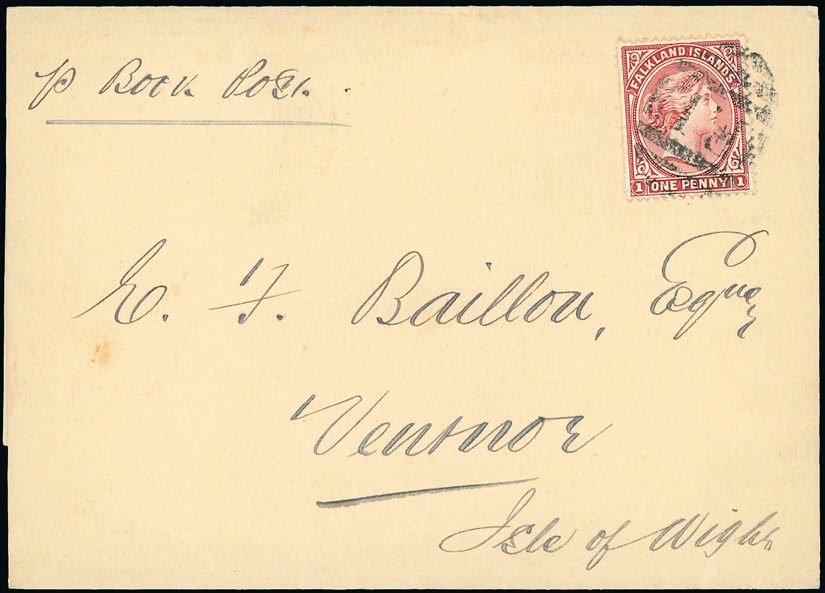 p Book Post.
FALKLAND ISLANDS
1 ONE PENNY 1
E. F. Baillon, Esqre
Ventnor
Isle of Wight